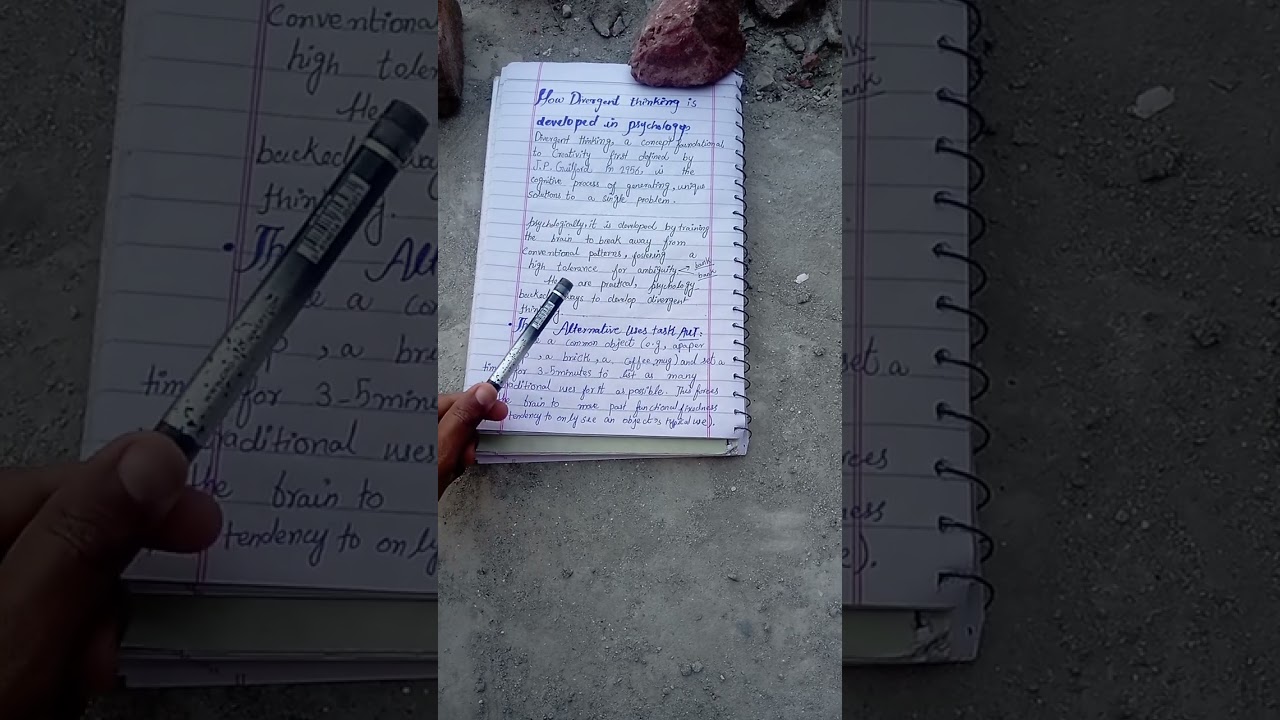 How Divergent thinking is
developed in psychology
Divergent thinking, a concept foundational
to Creativity first defined by
J.P. Guilford in 1956, is the
cognitive process of generating, unique
solutions to a single problem.
psychologically, it is developed by training
the brain to break away from
Conventional patterns, fostering a
high tolerance for ambiguity
bank
bank
He are practical, psychology
backed ways to develop divergent
thin
• Th Alternative Uses task AUT:
a common object (e.g, a paper
, a brick, a coffee mug) and set a
tim for 3-5minutes to list as many
aditional uses for it as possible. This forces
the brain to move past functional fixedness
tendency to only see an object's typical use).